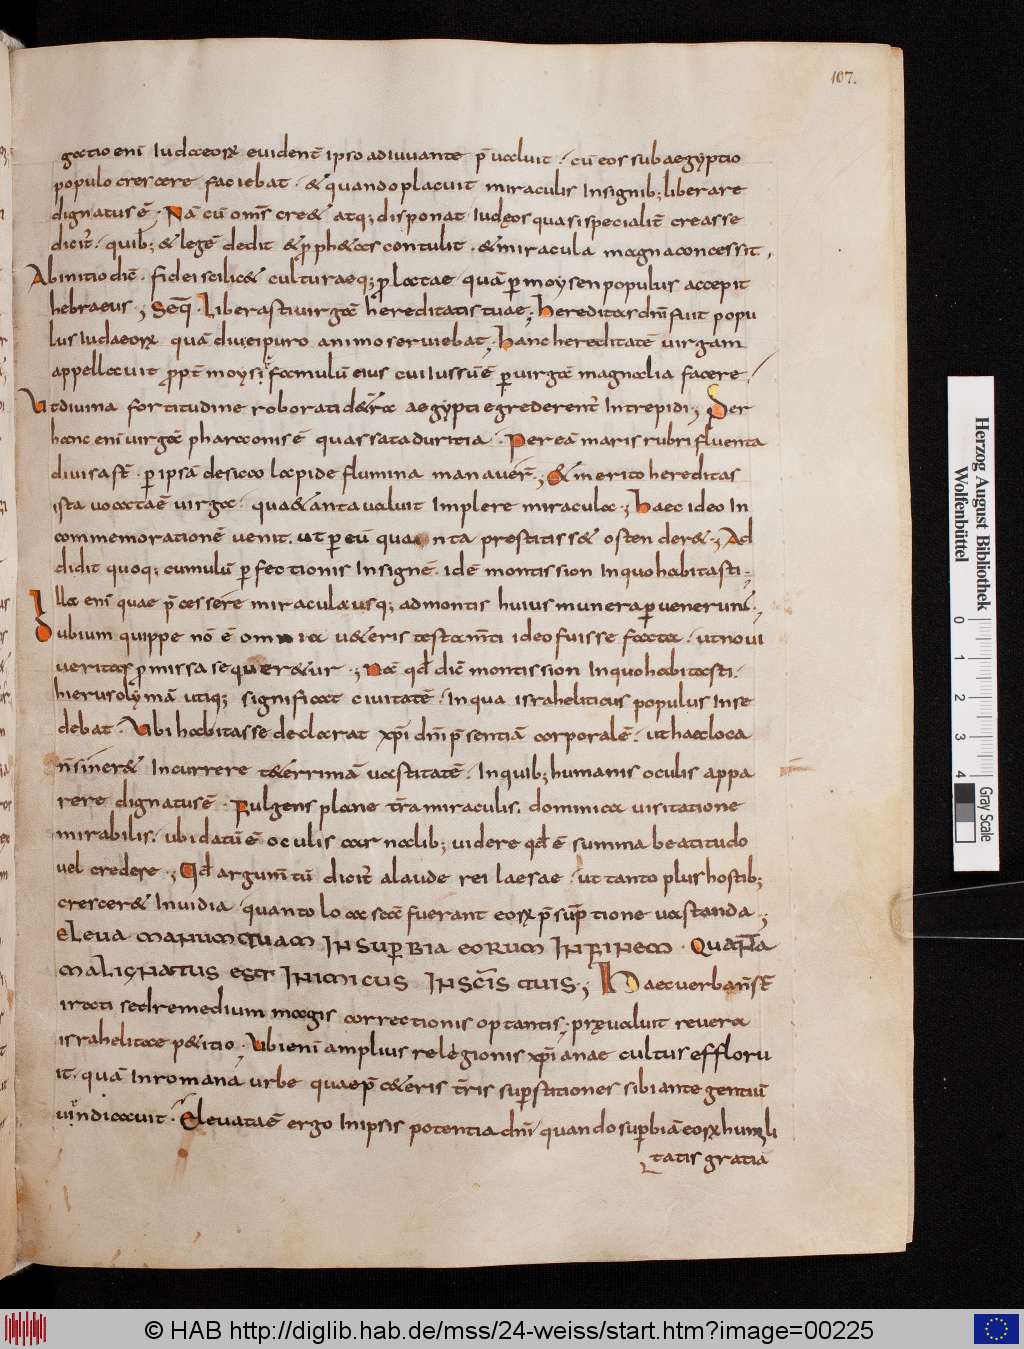 107.
gatio enī Iudaeorꝝ euidenť ipso adiuuante p̄ ualuit · cū eos sub aegyptio
populo crescere faciebat · & quando placuit miraculis Insignib; liberare
dignatus ē · Nā cū om̄s cre& atq; disponat Iudęos quasi specialiť creasse
dicit̄ · quib; & legē dedit & p̱ph&as contulit · & miracula magna concessit ,
Ab initio dic̄ · fidei scilic& culturaeq; p̱ latae quā ꝑ moysen populus accepit
hebraeus ·; Seq̄ · Liberasti uirgā hereditatis tuae ; Hereditas dn̄i fuit popu
lus Iudaeorꝝ quā diu ei puro animo seruiebat ; Hanc hereditatē uirgam
appellauit p̱pť moysi famulū eius cui Iussū ē ꝑ uirgā magnalia facere ·
Ut diuina fortitudine roborati d& aegypti egrederent̄ Intrepidi ·; Per
hanc enī uirgā pharaonis ē quassata duritia · Per eā maris rubri fluenta
diuisa st̄ · ꝑ ipsā de sicco lapide flumina manauer̄ ·; & merito hereditas
ista uocata ē uirga · quae tanta ualuit Implere miracula ·; Haec ideo In
commemorationē uenit · ut ꝑ eū quanta prestitiss& ostender& ·; Ad
didit quoq; cumulū ꝑfectionis Insignē · idē mons sion In quo habitasti ·
Illa enī quae p̄cessere miracula usq; ad montis huius munera ꝑuenerunt ·
Dubium quippe nō ē omnia u&eris testam̄ti ideo fuisse facta · ut noui
ueritas p̱missa sequer&ur ·; Nā qđ dic̄ mons sion In quo habitasti ·
hierusolymā utiq; significat ciuitatē · In qua israheliticus populus Inse
debat · Ubi habitasse declarat xp̄i dn̄i p̄sentiā corporalē · ut haec loca
n̄ siner& Incurrere t&errimā uastitatē · In quib; humanis oculis appa
rere dignatus ē · Fulgens plane tr̄a miraculis · dominica uisitatione
mirabilis · ubi datū ē oculis carnalib; uidere qđ ē summa beatitudo
uel credere ·; Qđ argum̄tū dicit̄ a laude rei laesae · ut tanto plus hostib;
crescer& Inuidia · quanto loca sc̄a fuerant eorꝝ p̄sūptione uastanda ·;
ELEUA MANUM TUAM IN SUPERBIA EORUM IN FINEM · QUANTA
MALIGNATUS EST INIMICUS IN SC̄IS TUIS ·; Haec uerba n̄ st̄
irati sed remedium magis correctionis optantis · pręualuit reuera
israhelitae p&itio · Ubi enī amplius relegionis xp̄ianae cultus effloru
it · quā In romana urbe quae p̄ c&eris tr̄is suꝑstitiones sibi ante gentiū
uindicauit · Eleuata ē ergo In ipsis potentia dn̄i · quando suꝑbiā eorꝝ humili
tatis gratia
Herzog August Bibliothek
Wolfenbüttel
0 1 2 3 4
Gray Scale
© HAB http://diglib.hab.de/mss/24-weiss/start.htm?image=00225